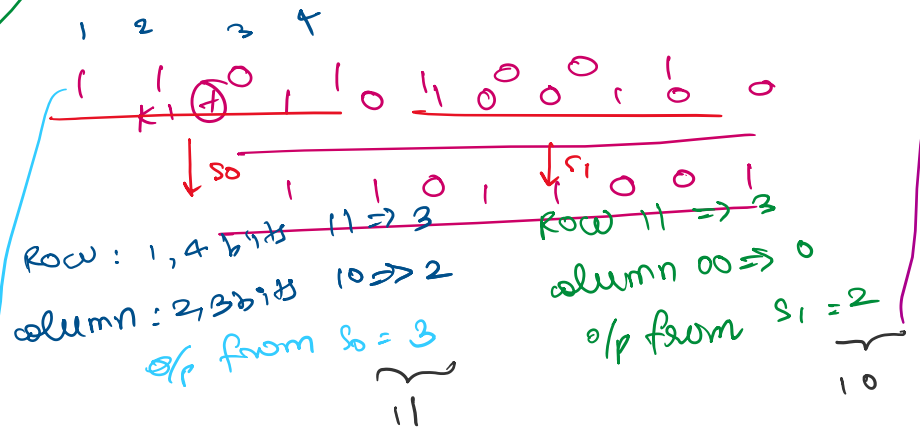 1 2 3 4
1 1 0 1 1 0 0 1
K1 + 1 0 1 0 0 1 0 0
S0 S1
1 1 0 1 1 0 0 1
Row : 1, 4 bits 11 => 3
column : 2, 3 bits 10 => 2
o/p from S0 = 3
11
Row 11 => 3
column 00 => 0
o/p from S1 = 2
10